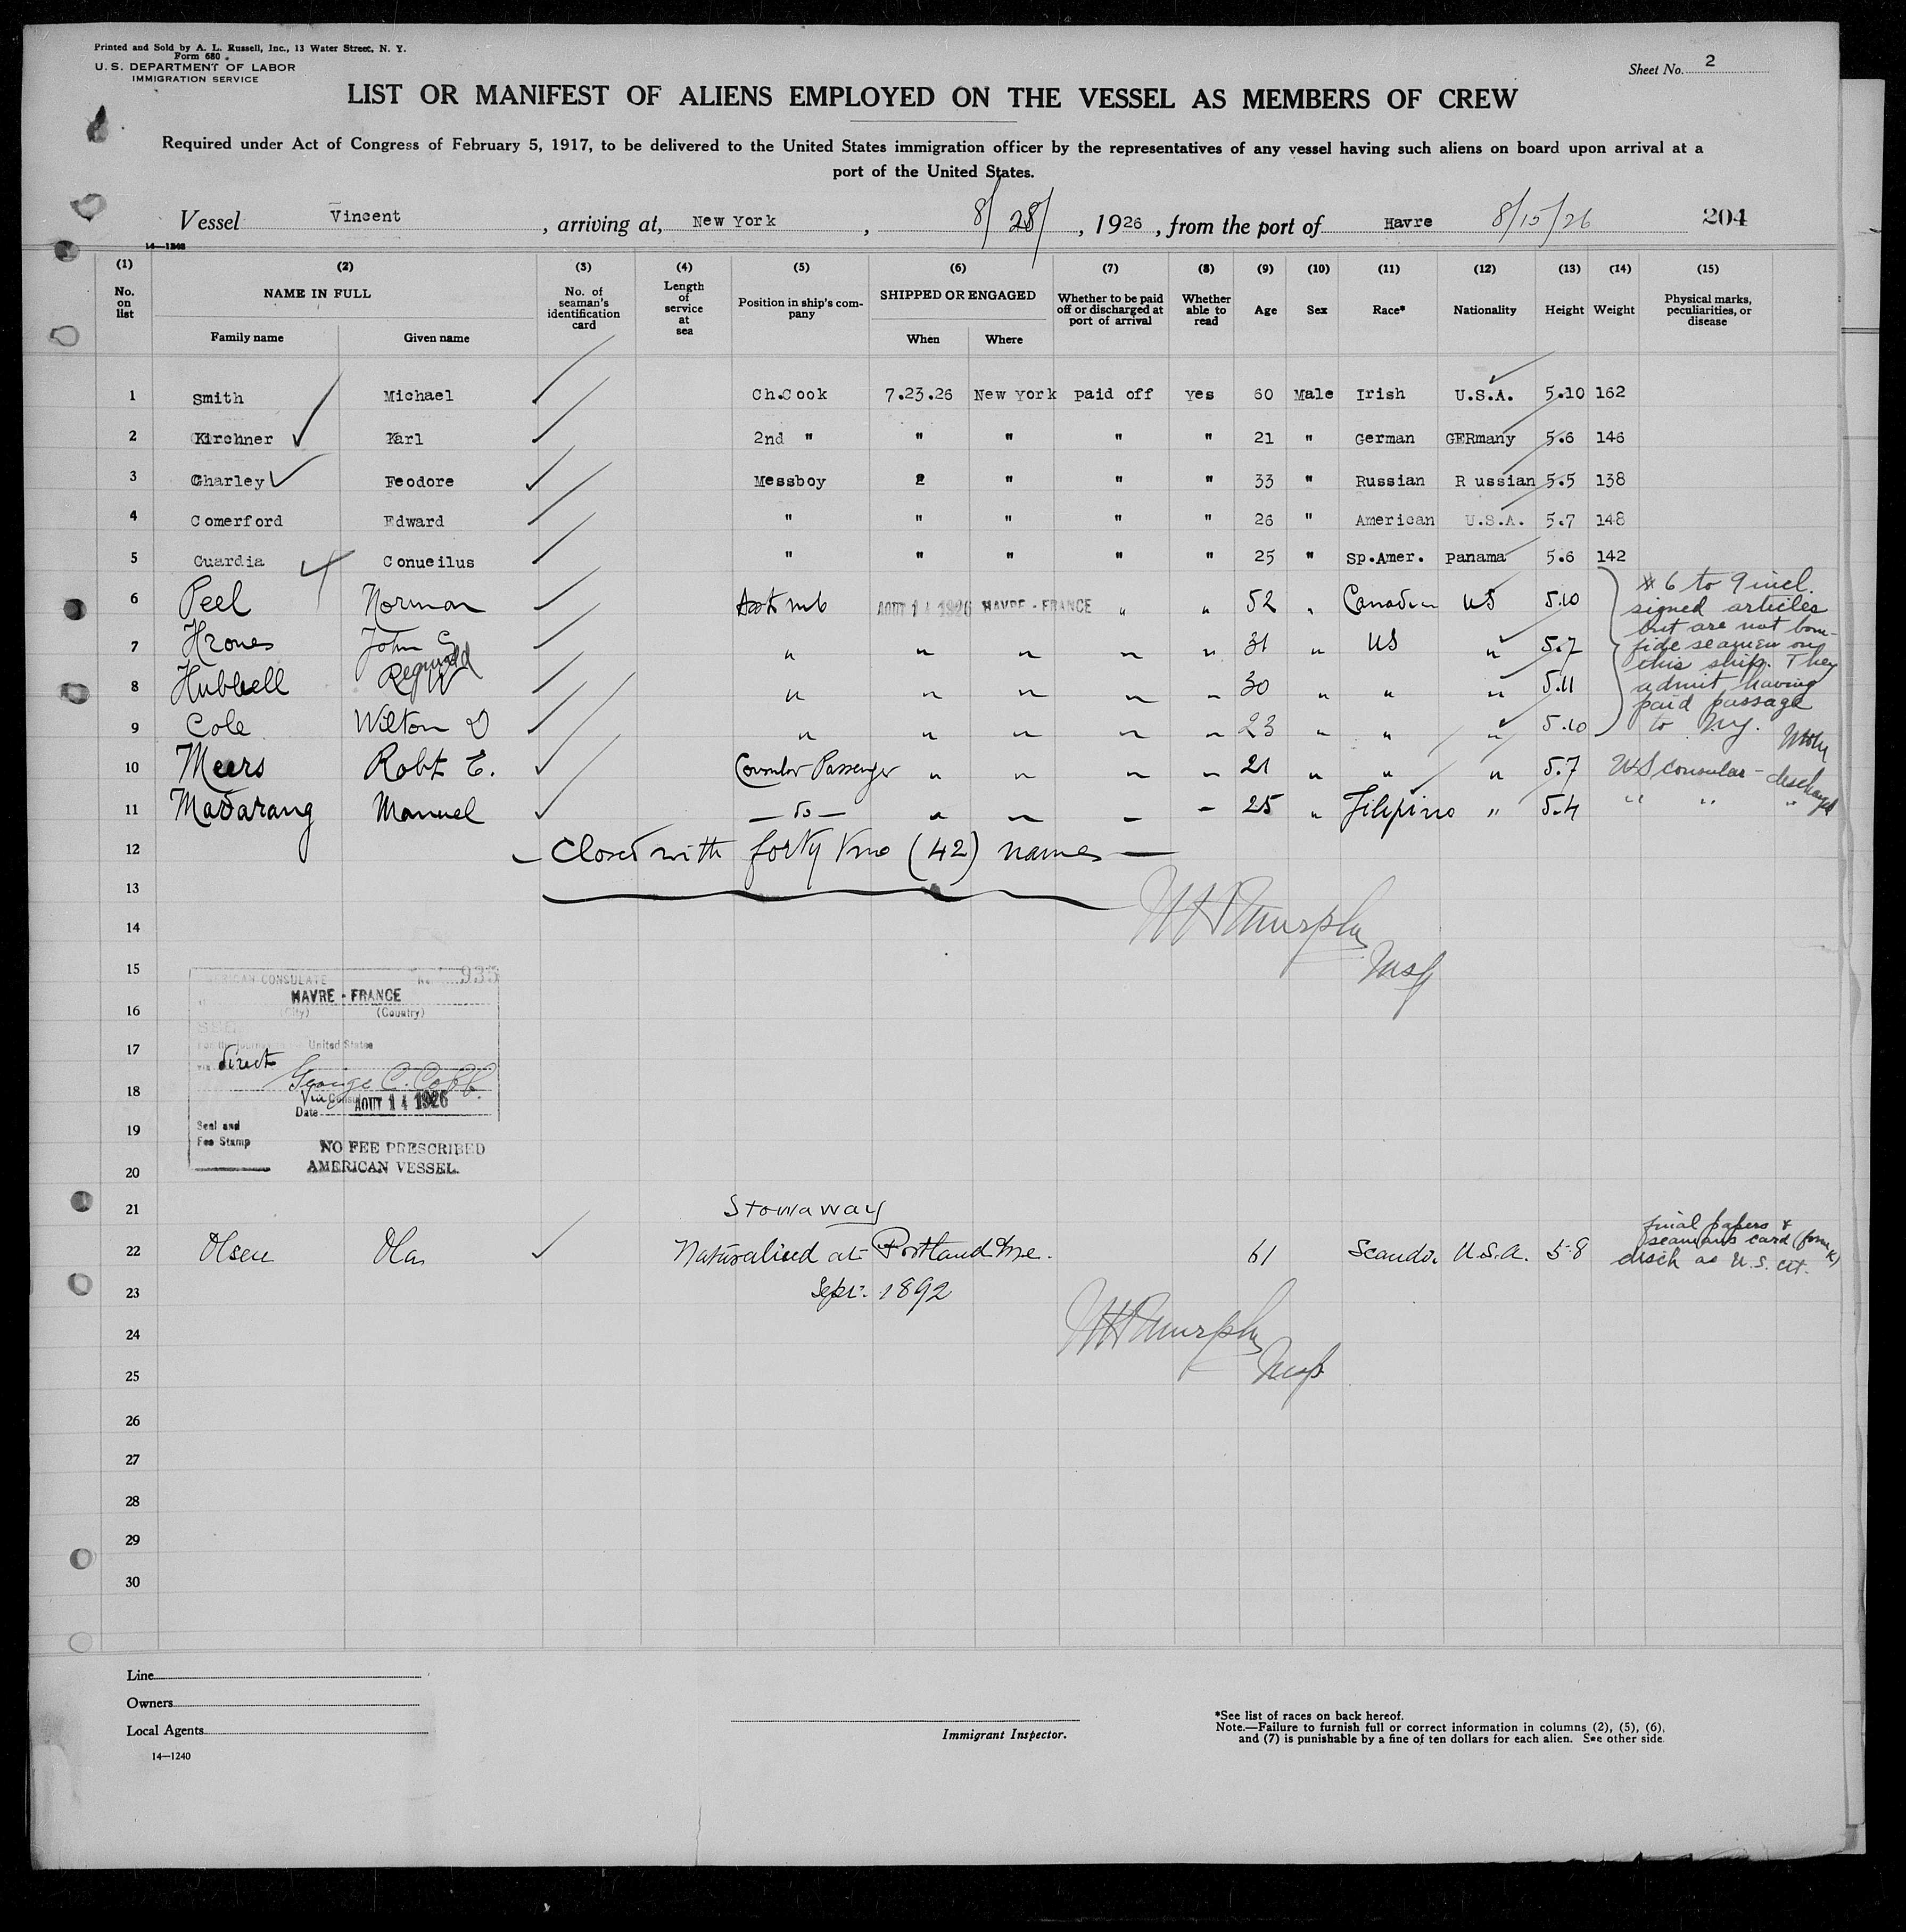 Printed and Sold by A. L. Russell, Inc., 13 Water Street, N. Y.
Form 680
U. S. DEPARTMENT OF LABOR
IMMIGRATION SERVICE
Sheet No. 2
LIST OR MANIFEST OF ALIENS EMPLOYED ON THE VESSEL AS MEMBERS OF CREW
Required under Act of Congress of February 5, 1917, to be delivered to the United States immigration officer by the representatives of any vessel having such aliens on board upon arrival at a
port of the United States.
Vessel Vincent , arriving at, New York , 8/28/ , 1926 , from the port of Havre 8/15/26 204
14—1240
(1) (2) (3) (4) (5) (6) (7) (8) (9) (10) (11) (12) (13) (14) (15)
No. on list NAME IN FULL Family name Given name No. of seaman's identification card Length of service at sea Position in ship's company SHIPPED OR ENGAGED When Where Whether to be paid off or discharged at port of arrival Whether able to read Age Sex Race* Nationality Height Weight Physical marks, peculiarities, or disease
1 Smith Michael Ch.Cook 7.23.26 New York paid off yes 60 Male Irish U.S.A. 5.10 162
2 Kirchner Karl 2nd " " " " " 21 " German GERmany 5.6 146
3 Charley Feodore Messboy " " " " 33 " Russian R ussian 5.5 138
4 Comerford Edward " " " " " 26 " American U.S.A. 5.7 148
5 Guardia Conueilus " " " " " 25 " Sp.Amer. Panama 5.6 142
6 Peel Norman AOUT 14 1926 HAVRE - FRANCE " " 52 " Canadian US 5.10
7 Hrones John G " " " " " 31 " US " 5.7
8 Hubbell Reginald W " " " " " 30 " " " 5.11
9 Cole Wilton D " " " " " 23 " " " 5.10
# 6 to 9 incl.
signed articles
but are not bona-
fide seamen on
this ship. They
admit having
paid passage
to NY.
10 Meers Robt E. Consular Passenger " " " " 21 " " " 5.7 US consular - discharged
11 Madarang Manuel — do — " " " " 25 " Filipino " 5.4 " " "
12 — Closed with forty two (42) names —
13
14 Murphy
15 Insp
AMERICAN CONSULATE No. 935
16 HAVRE - FRANCE
(City) (Country)
SEEN
17 For the journey United States
via direct
18 George C. Cobb
Vice Consul
Date AOUT 14 1926
19 Seal and
Fee Stamp
NO FEE PRESCRIBED
20 AMERICAN VESSEL.
21 Stowaway
22 Olsen Ola Naturalized at Portland Me. 61 Scandi. U.S.A. 5-8
final papers &
seamans card (form
disch as U.S. cit.
23 Sept. 1892
24 Murphy
25 Insp
26
27
28
29
30
Line
Owners
Local Agents
14—1240
Immigrant Inspector.
*See list of races on back hereof.
Note.—Failure to furnish full or correct information in columns (2), (5), (6),
and (7) is punishable by a fine of ten dollars for each alien. See other side.